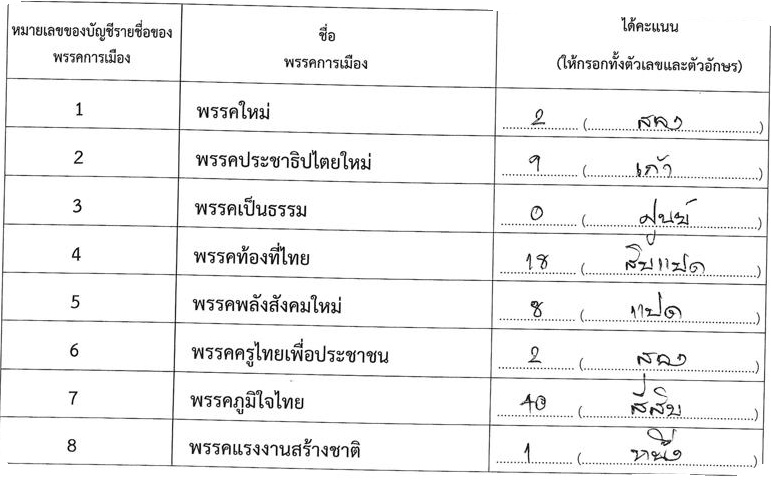 หมายเลขของบัญชีรายชื่อของ ชื่อ ได้คะแนน
พรรคการเมือง พรรคการเมือง (ให้กรอกทั้งตัวเลขและตัวอักษร)
1 พรรคใหม่ 2 (สอง)
2 พรรคประชาธิปไตยใหม่ 9 (เก้า)
3 พรรคเป็นธรรม 0 (ศูนย์)
4 พรรคท้องที่ไทย 18 (สิบแปด)
5 พรรคพลังสังคมใหม่ 8 (แปด)
6 พรรคครูไทยเพื่อประชาชน 2 (สอง)
7 พรรคภูมิใจไทย 40 (สี่สิบ)
8 พรรคแรงงานสร้างชาติ 1 (หนึ่ง)